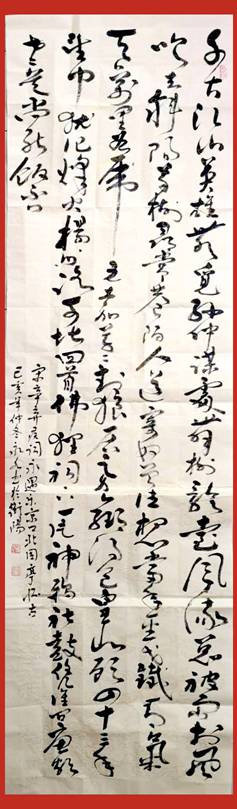 千古江山英雄无觅孙仲谋处舞榭歌台风流总被雨打风
吹去斜阳草树寻常巷陌人道寄奴曾住想当年金戈铁马气
吞万里如虎元嘉草草封狼居胥赢得仓皇北顾四十三年
望中犹记烽火扬州路可堪回首佛狸祠下一片神鸦社鼓凭谁问廉颇
老矣尚能饭否
宋辛弃疾词永遇乐京口北固亭怀古
己亥年仲冬书于衡阳